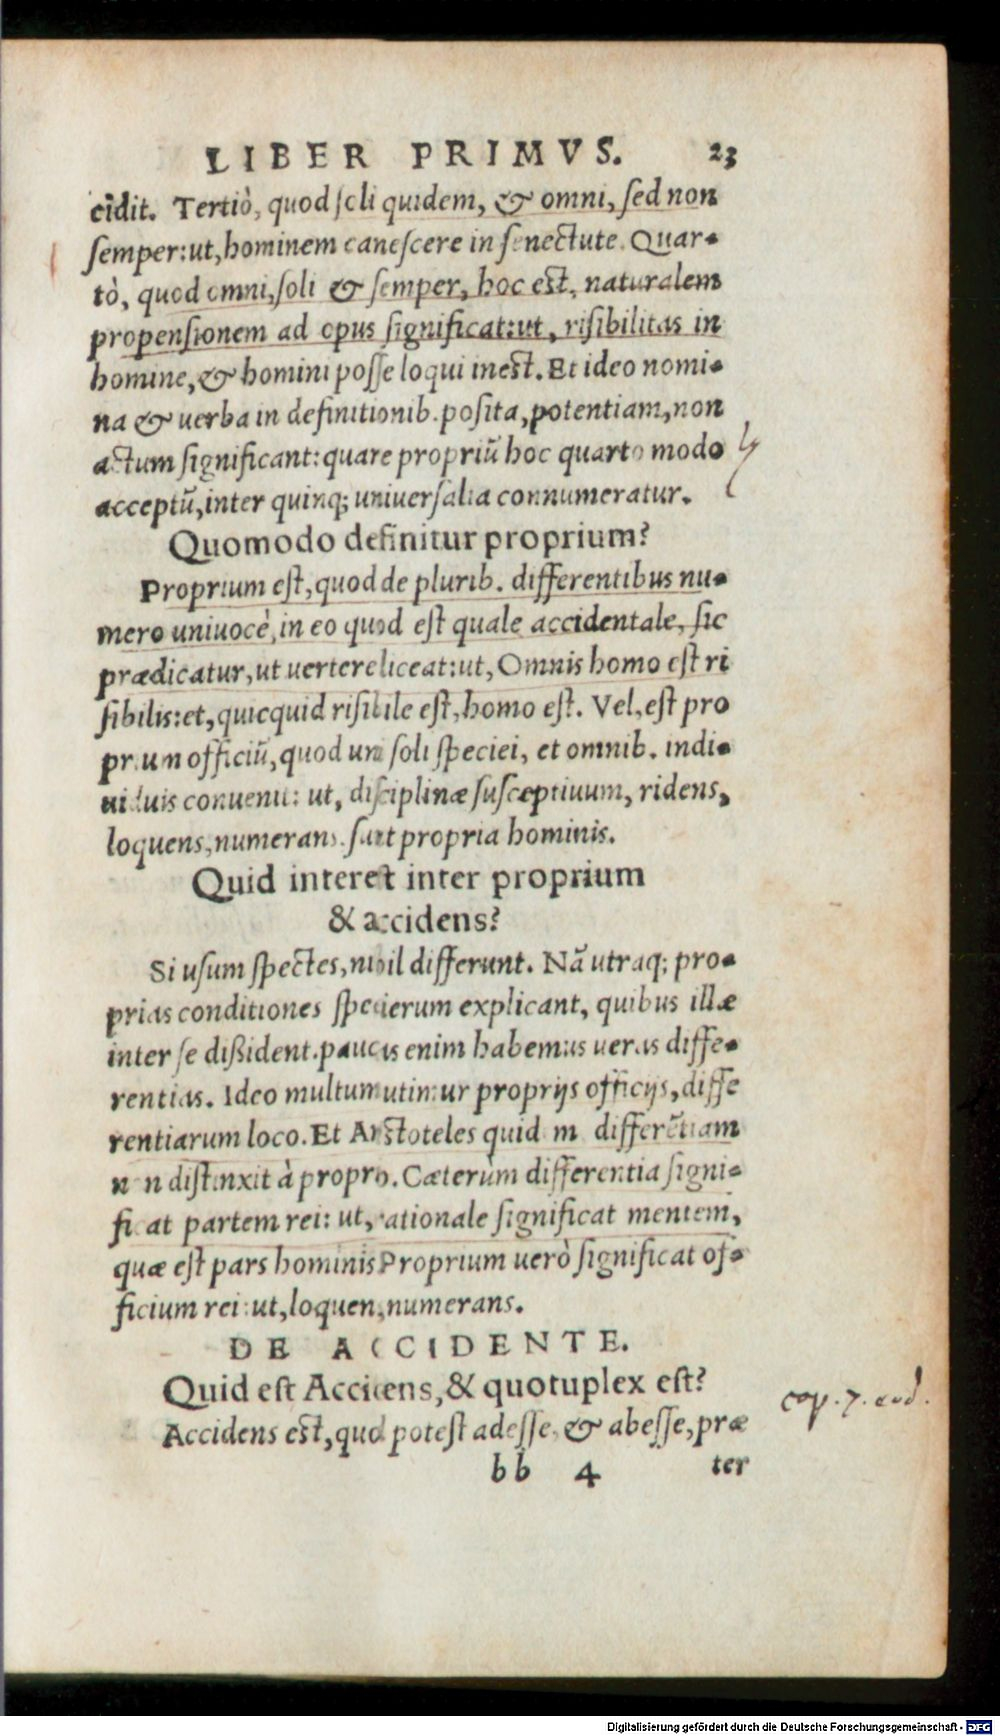 LIBER PRIMVS. 23
cidit. Tertiò, quod soli quidem, & omni, sed non
semper: ut, hominem canescere in senectute. Quar-
tò, quod omni, soli & semper, hoc est, naturalem
propensionem ad opus significat: ut, risibilitas in
homine, & homini posse loqui inest. Et ideo nomi-
na & uerba in definitionib. posita, potentiam, non
actum significant: quare propriũ hoc quarto modo
acceptũ, inter quinq; uniuersalia connumeratur.
Quomodo definitur proprium?
Proprium est, quod de plurib. differentibus nu-
mero uniuocè, in eo quod est quale accidentale, sic
prædicatur, ut uertere liceat: ut, Omnis homo est ri
sibilis: et, quicquid risibile est, homo est. Vel, est pro
prium officiũ, quod uni soli speciei, et omnib. indi-
uiduis conuenit: ut, disciplinæ susceptiuum, ridens,
loquens, numerans. sunt propria hominis.
Quid interest inter proprium
& accidens?
Si usum spectes, nihil differunt. Nã utraq; pro-
prias conditiones specierum explicant, quibus illæ
inter se dißident. paucis enim habemus ueras diffe-
rentias. Ideo multum utimur proprijs officijs, diffe
rentiarum loco. Et Aristoteles quidem differẽtiam
non distinxit à proprio. Cæterùm differentia signi-
ficat partem rei: ut, rationale significat mentem,
quæ est pars hominis Proprium uerò significat of-
ficium rei: ut, loquens, numerans.
DE ACCIDENTE.
Quid est Accidens, & quotuplex est?
cap. 7. eod.
Accidens est, quod potest adesse, & abesse, præ
bb 4 ter
Digitalisierung gefördert durch die Deutsche Forschungsgemeinschaft - DFG